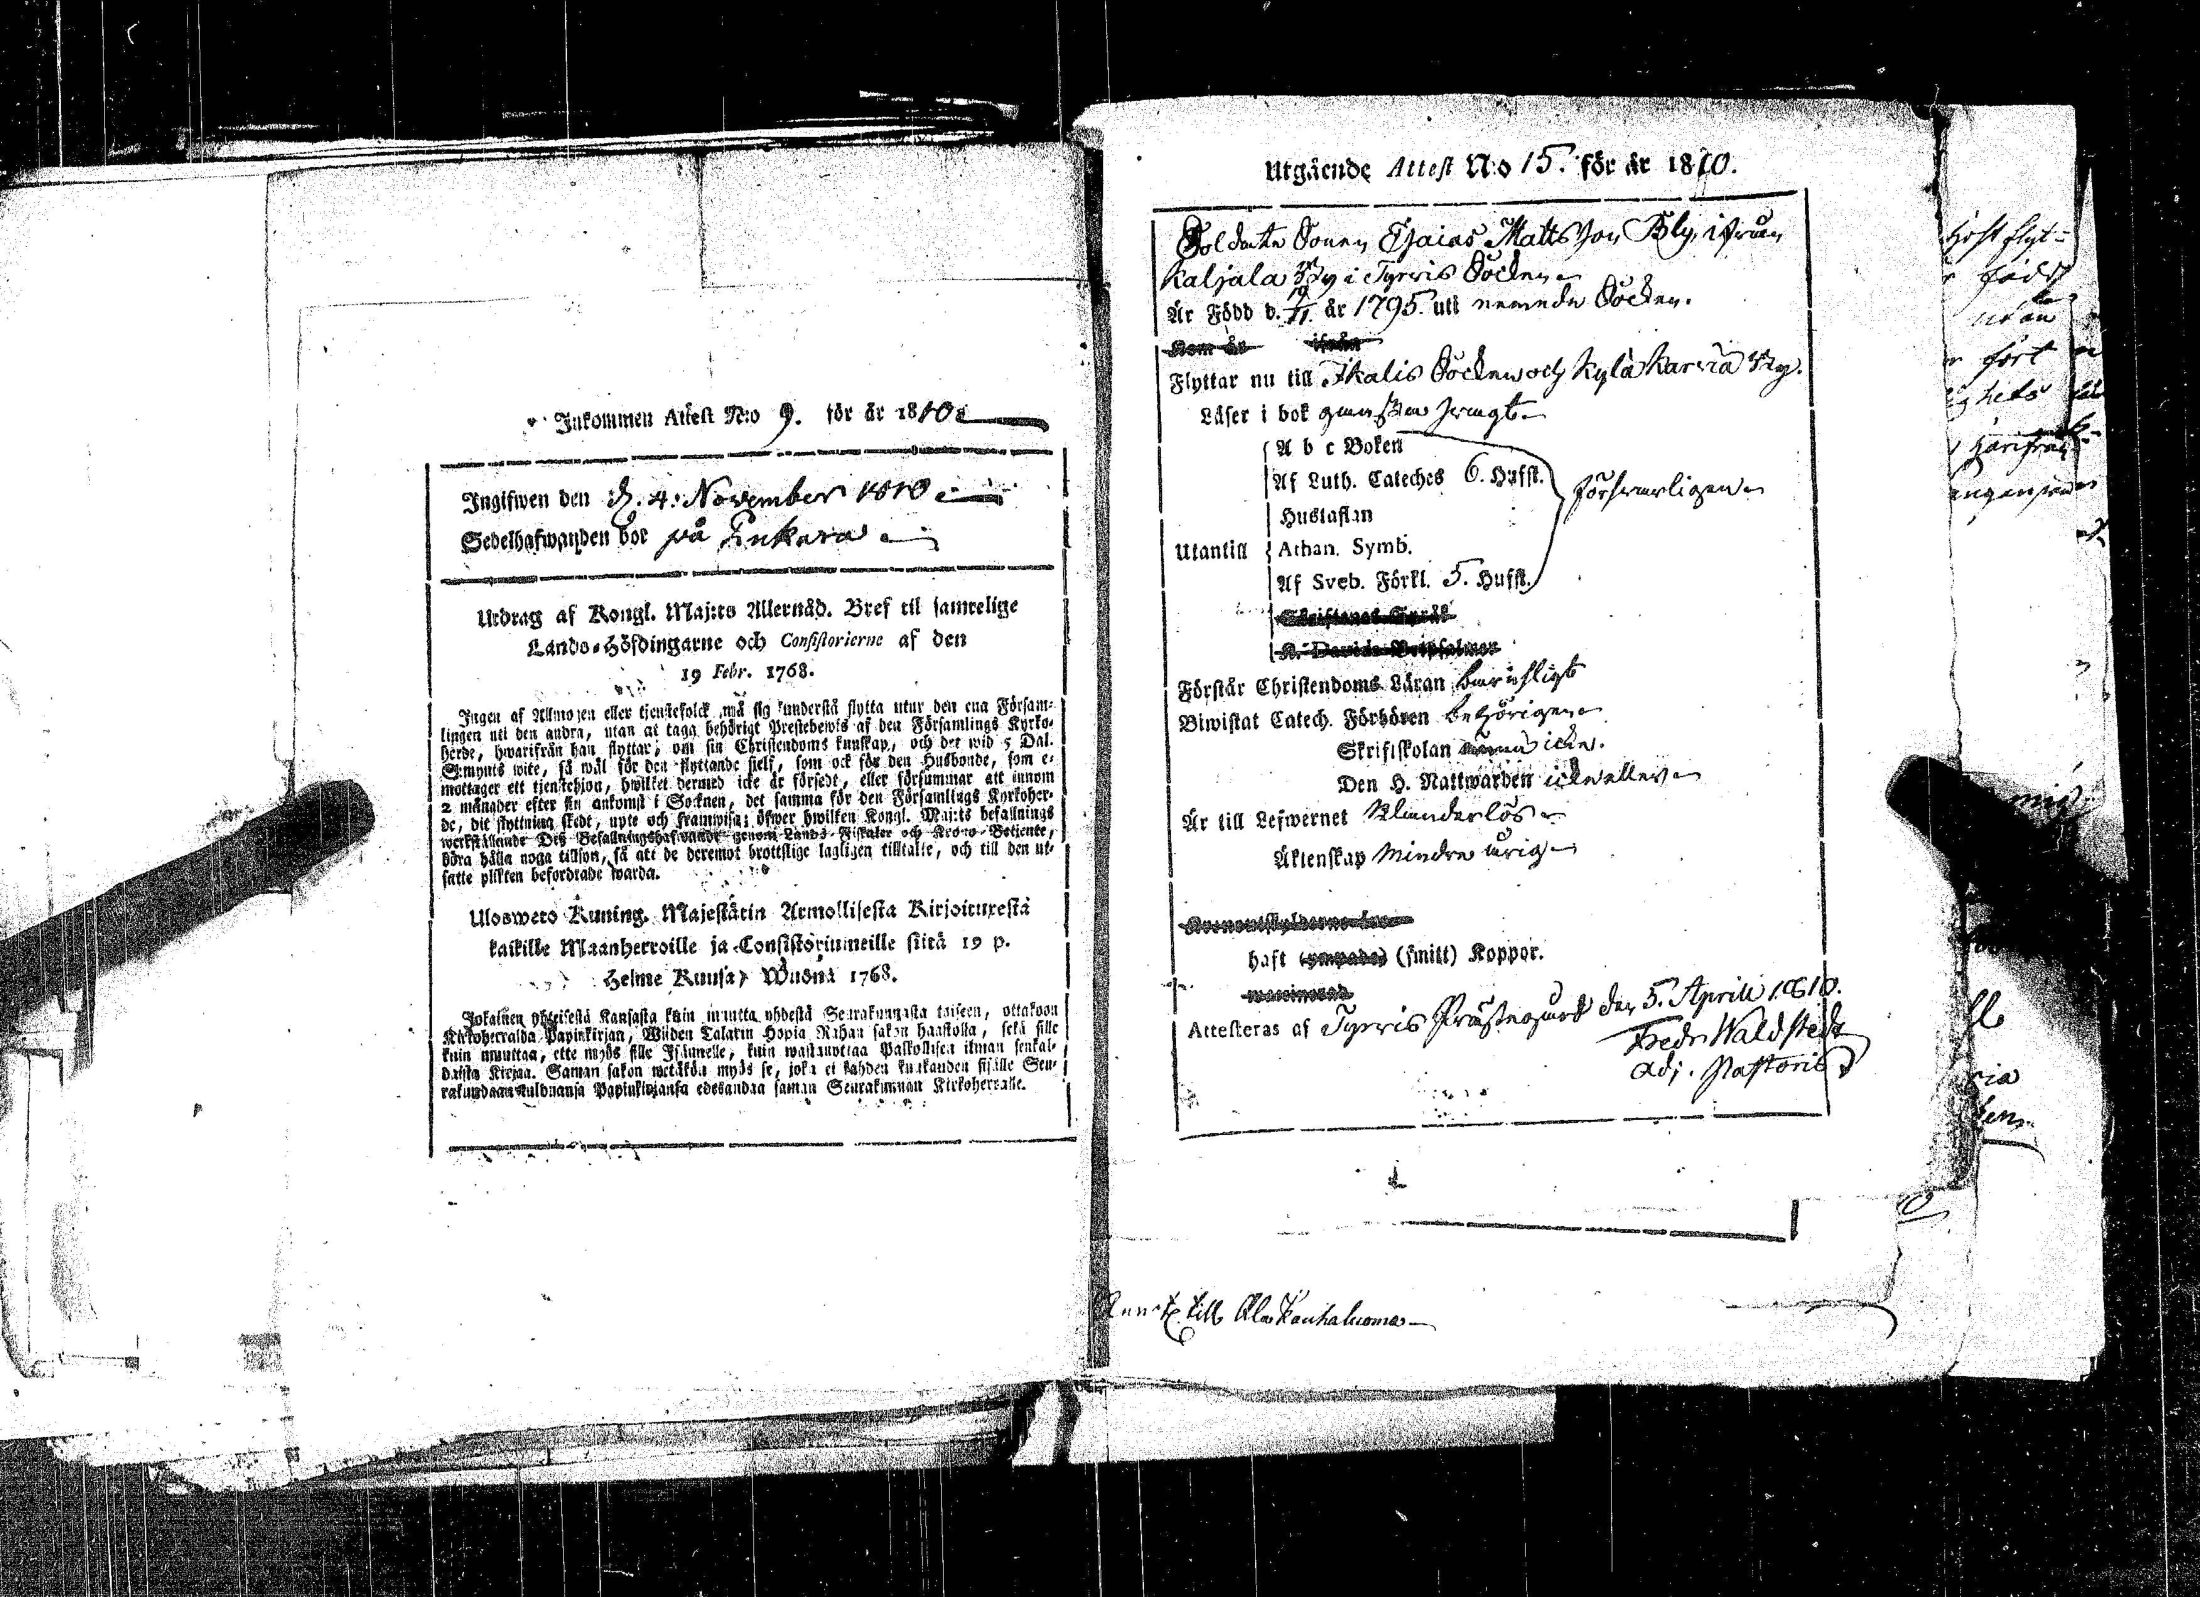 Inkommen Attest N:o 9. för år 1810
Ingifwen den d. 4. November 1810
Sedelhafwanden bor på
Utdrag af Kongl. Maj:ts Allernåd. Bref til samtelige
Lands-Höfdingarne och Consistorierne af den
19 Febr. 1768.
Ingen af Allmogen eller tjenstefolck må sig understå flytta utur den ena Försam-
lingen uti den andra, utan at taga behörigt Prestebewis af den Församlings Kyrko-
herde, hwarifrån han flyttar, om sin Christendoms kunskap, och det wid 5 Dal.
S:mynts wite, så wäl för den flyttande sielf, som ock för den Husbonde, som e-
mottager ett tjenstehjon, hwilket dermed icke är försedt, eller försummar att innom
2 månader efter sin ankomst i Socknen, det samma för den Församlings Kyrkoher-
de, dit flyttning skedt, upte och framwisa; öfwer hwilken Kongl. Maj:ts befallnings
werkställande Des Befallningshafwande genom Lands-Fiskaler och Krono-Betjente,
böra hålla noga tillsyn, så att de deremot brottslige lagligen tilltalte, och till den ut-
satte plikten befordrade warda.
Ulosweto Kuning. Majestätin Armollisesta Kirjoituxestä
kaikille Maanherroille ja Consistoriumeille siitä 19 p.
Helme Kuusa, Wuonna 1768.
Jokainen yhteisestä Kansasta kuin muutta yhdestä Seurakunnasta toiseen, ottakoon
Kirkoherralda Papinkirjan, Wiiden Talarin Hopia Rahan sakon haastolla, sekä sille
kuin muuttaa, ette myös sille Isännelle, kuin wastanottaa Palkollisen ilman senkal-
daista Kirjaa. Saman sakon wetäkön myös se, joka ei kahden kuukauden sisälle Seu-
rakundaan tulduansa Papinkirjansa edesandaa saman Seurakunnan Kirkoherralle.
Utgående Attest N:o 15. för år 1810.
Soldate Sonen Esaias Matts Son Bly, ifrån
Kaljala By i Tyrvis Socken
Är Född d. 19/11. år 1795. uti nemnde Socken.
Kom år ifrån
Flyttar nu till Ikalis Socken och Kylä Karvia By.
Läser i bok ganska swagt
A b c Boken
Af Luth. Cateches 6. Hufst.
Hustaflan
försvarligen
Utantill
Athan. Symb.
Af Sveb. Förkl. 5. Hufst.
Skriftenes Språk
K. Davids Botpsalmer
Förstår Christendoms Läran
Biwistat Catech. Förhören behörigen
Skriftskolan icke.
Den H. Nattwarden icke eller
Är till Lefwernet Klanderlös
Äktenskap Mindre årig
haft (ympade) (smitt) Koppor.
Attesteras af Tyrvis Prästegård den 5. Aprill 1810.
Fredr. Waldstedt
Adj. Pastoris
till Ala Kauhaluoma
Höst flyt-
född
fört
ghets
härifrån